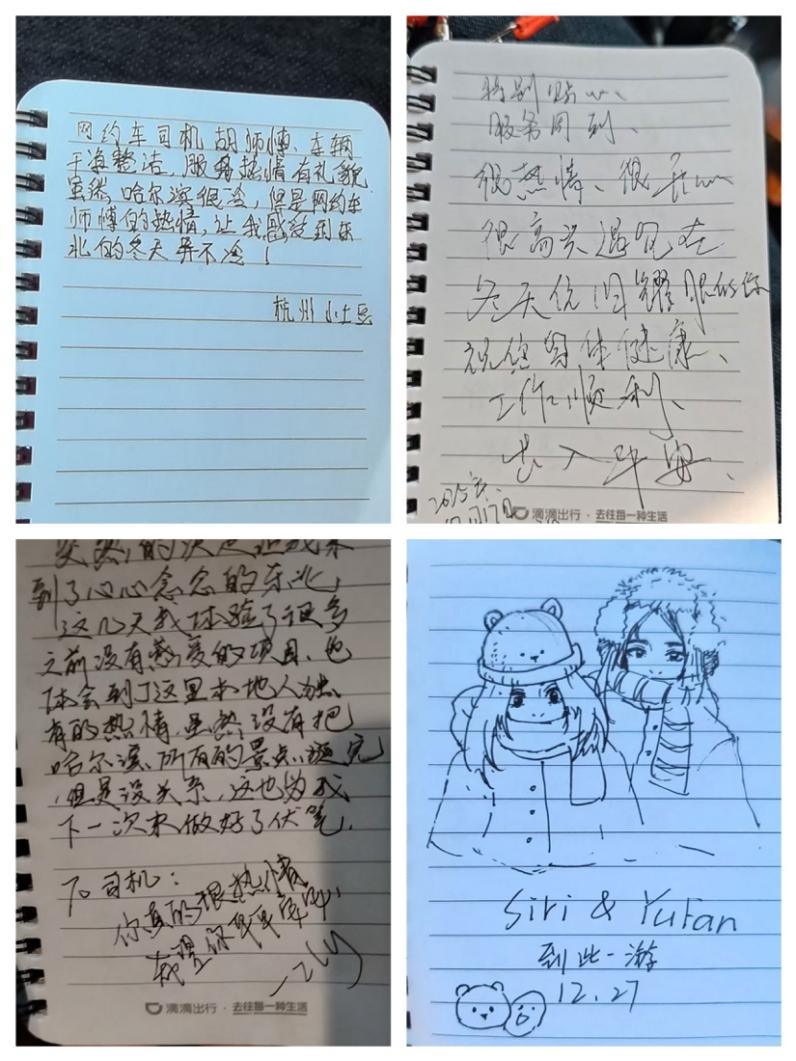 网约车司机胡师傅、车辆
干净整洁,服务热情有礼貌.
虽然哈尔滨很冷,但是网约车
师傅的热情,让我感受到东
北的冬天并不冷!
杭州小土豆
特别贴心、
服务周到、
很热情、很开心
很高兴遇见在
冬天依旧耀眼的你
祝您身体健康、
工作顺利、
出入平安、
滴滴出行·去往每一种生活
到了心心念念的东北,
这几天我体验了很多
之前没有感受的项目、也
体会到了这里本地人独
有的热情,虽然没有把
哈尔滨所有的景点逛完
,但是没关系,这也为我
下一次来做好了伏笔.
To 司机:
你真的很热情
希望你平平安安
—zly
滴滴出行·去往每一种生活
Siri & YuFan
到此一游
12.27